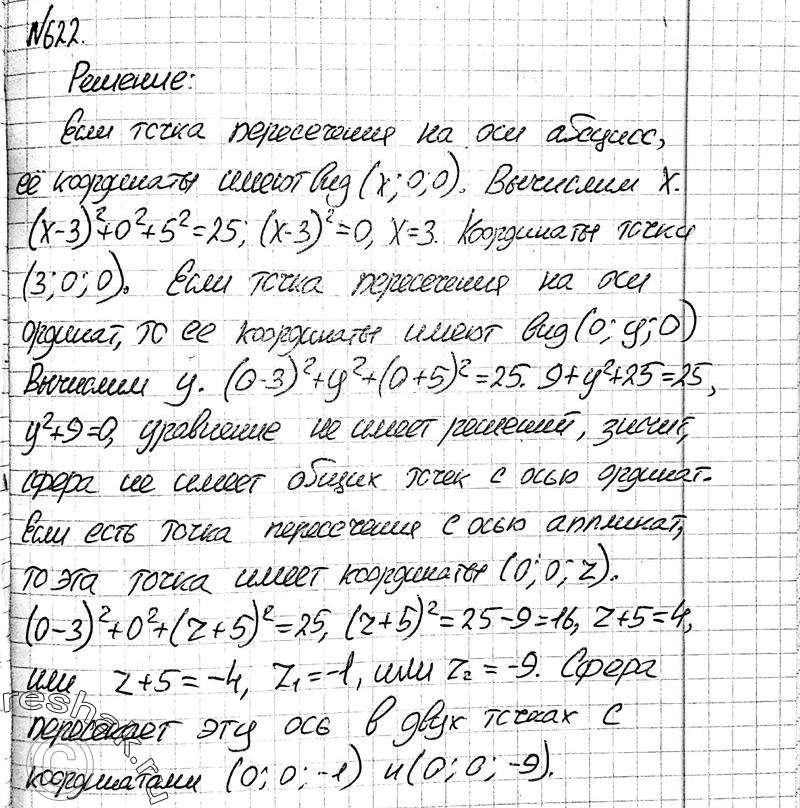 №622.
Решение:
Если точка пересечения на оси абсцисс,
её координаты имеют вид (x; 0; 0). Вычислим x.
(x-3)²+0²+5²=25; (x-3)²=0, x=3. Координаты точки
(3; 0; 0). Если точка пересечения на оси
ординат, то ее координаты имеют вид (0; y; 0)
Вычислим y. (0-3)²+y²+(0+5)²=25. 9+y²+25=25,
y²+9=0, уравнение не имеет решений, значит,
сфера не имеет общих точек с осью ординат.
Если есть точка пересечения с осью аппликат,
то эта точка имеет координаты (0; 0; z).
(0-3)²+0²+(z+5)²=25, (z+5)²=25-9=16, z+5=4,
или z+5=-4, z₁=-1, или z₂=-9. Сфера
пересекает эту ось в двух точках с
координатами (0; 0; -1) и (0; 0; -9).
reshak.ru